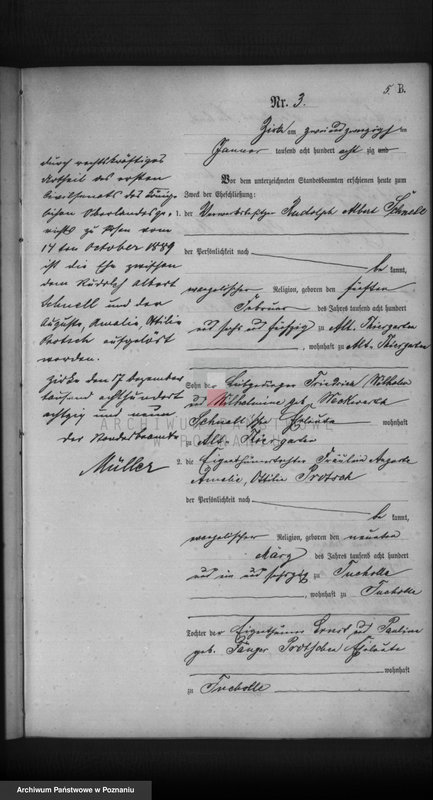 5. B.
Nr. 3.
Zirke am zwei und zwanzigsten
Januar tausend acht hundert acht zig und
Vor dem unterzeichneten Standesbeamten erschienen heute zum
Zweck der Eheschließung:
1. der Vorwerksbesitzer Rudolph Albert Schnell
der Persönlichkeit nach
be kannt,
evangelischer Religion, geboren den fünften
Februar des Jahres tausend acht hundert
und sechs und fünfzig zu Alt. Thiergarten
, wohnhaft zu Alt. Thiergarten
Sohn der Friedrich Wilhelm
und Wilhelmine geb.
Schnell'schen Eheleute wohnhaft
zu Alt. Thiergarten
2. die Eigenthümertochter Fräulein Auguste
Amalie, Ottilie Protsch
der Persönlichkeit nach
be kannt,
evangelischer Religion, geboren den neunten
März des Jahres tausend acht hundert
und ein und sechszig zu Tucholle
, wohnhaft zu Tucholle
Tochter der Eigenthümer Ernst und Pauline
geb. Sänger Protschen Eheleute
wohnhaft
zu Tucholle
durch rechtskräftiges
Urtheil des ersten
Civilsenats des König-
lichen Oberlandesge-
richts zu Posen vom
14ten October 1889
ist die Ehe zwischen
dem Rudolf Albert
Schnell und der
Auguste, Amalie, Ottilie
Protsch aufgelöst
worden.
Zirke den 17 Dezember
tausend achthundert
achtzig und neun
der Standesbeamte
Müller
ARCHIWUM PAŃSTWOWE
W POZNANIU
Archiwum Państwowe w Poznaniu